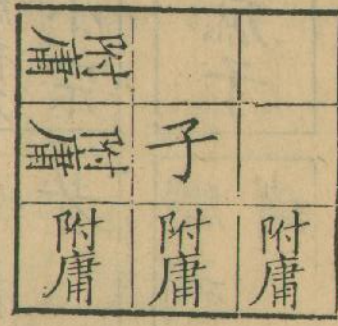 附庸
子
附庸
附庸
附庸
附庸